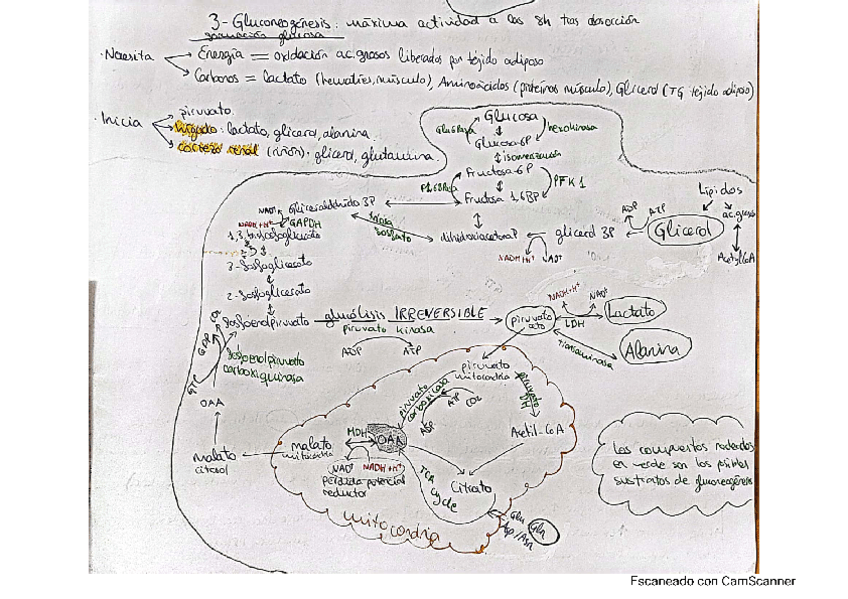 3- Gluconeogénesis: máxima actividad a las 8h tras absorción
formación glucosa
· Necesita
Energía = oxidación ac.grasos liberados por tejido adiposo
Carbonos = Lactato (hematíes, músculo), Aminoácidos (proteínas músculo), Glicerol (TG tejido adiposo)
· Inicia
piruvato
hígado: lactato, glicerol, alanina
corteza renal (riñón): glicerol, glutamina
Glucosa
Glu6Pasa
hexokinasa
Glucosa-6P
isomerización
Fructosa-6P
PFK1
Fructosa 1,6BP
Lípidos
ac.grasos
AcetylCoA
Glicerol
ADP
ATP
glicerol 3P
NADH+H+
dihidroxiacetonaP
triosa
fosfato
Gliceraldehído 3P
NAD+
NADH+H+
GAPDH
1,3,bifosfoglicerato
3-fosfoglicerato
2-fosfoglicerato
fosfoenolpiruvato
gluólisis IRREVERSIBLE
piruvato kinasa
ADP
ATP
piruvato
NADH+H+
NAD+
LDH
Lactato
Alanina
transaminasa
CO2
GDP
GTP
fosfoenolpiruvato
carboxiquinasa
OAA
malato
citosol
piruvato
mitocondria
piruvato
carboxilasa
ATP
CO2
ADP
piruvato
Acetil-CoA
malato
mitocondria
MDH
OAA
NAD+
NADH+H+
perdida potencial
reductor
TCA
cycle
Citrato
Glu
Gln
Asp/Asn
mitocondria
Los compuestos rodeados
en verde son los posibles
sustratos de gluconeogénesis
Escaneado con CamScanner